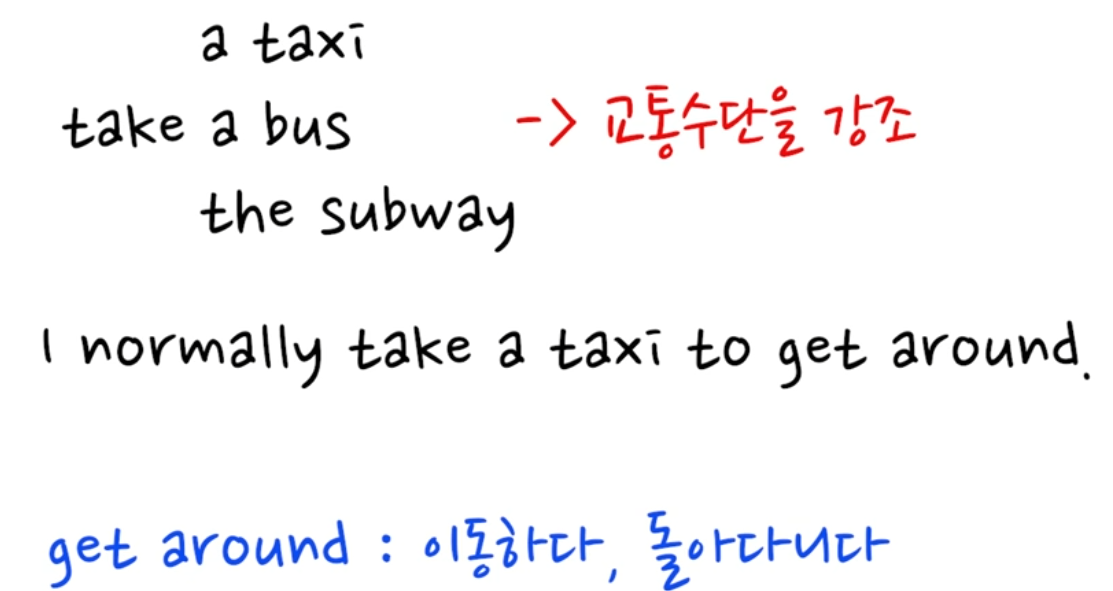 a taxi
take a bus -> 교통수단을 강조
the subway
I normally take a taxi to get around.
get around : 이동하다, 돌아다니다